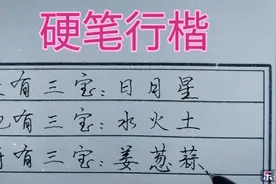 硬笔行楷
有三宝：日月星
有三宝：水火土
有三宝：姜葱蒜